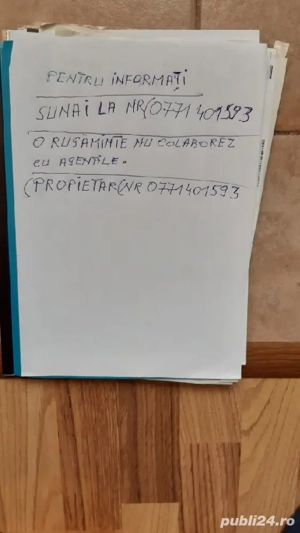 PENTRU INFORMAȚI
SUNAI LA NR(0771401593
O RUGĂMINTE NU COLABOREZ
CU AGENȚILE.
(PROPIETAR(NR 0771401593
publi24.ro